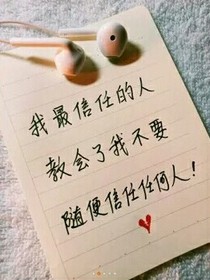 我最信任的人
教会了我不要
随便信任任何人！